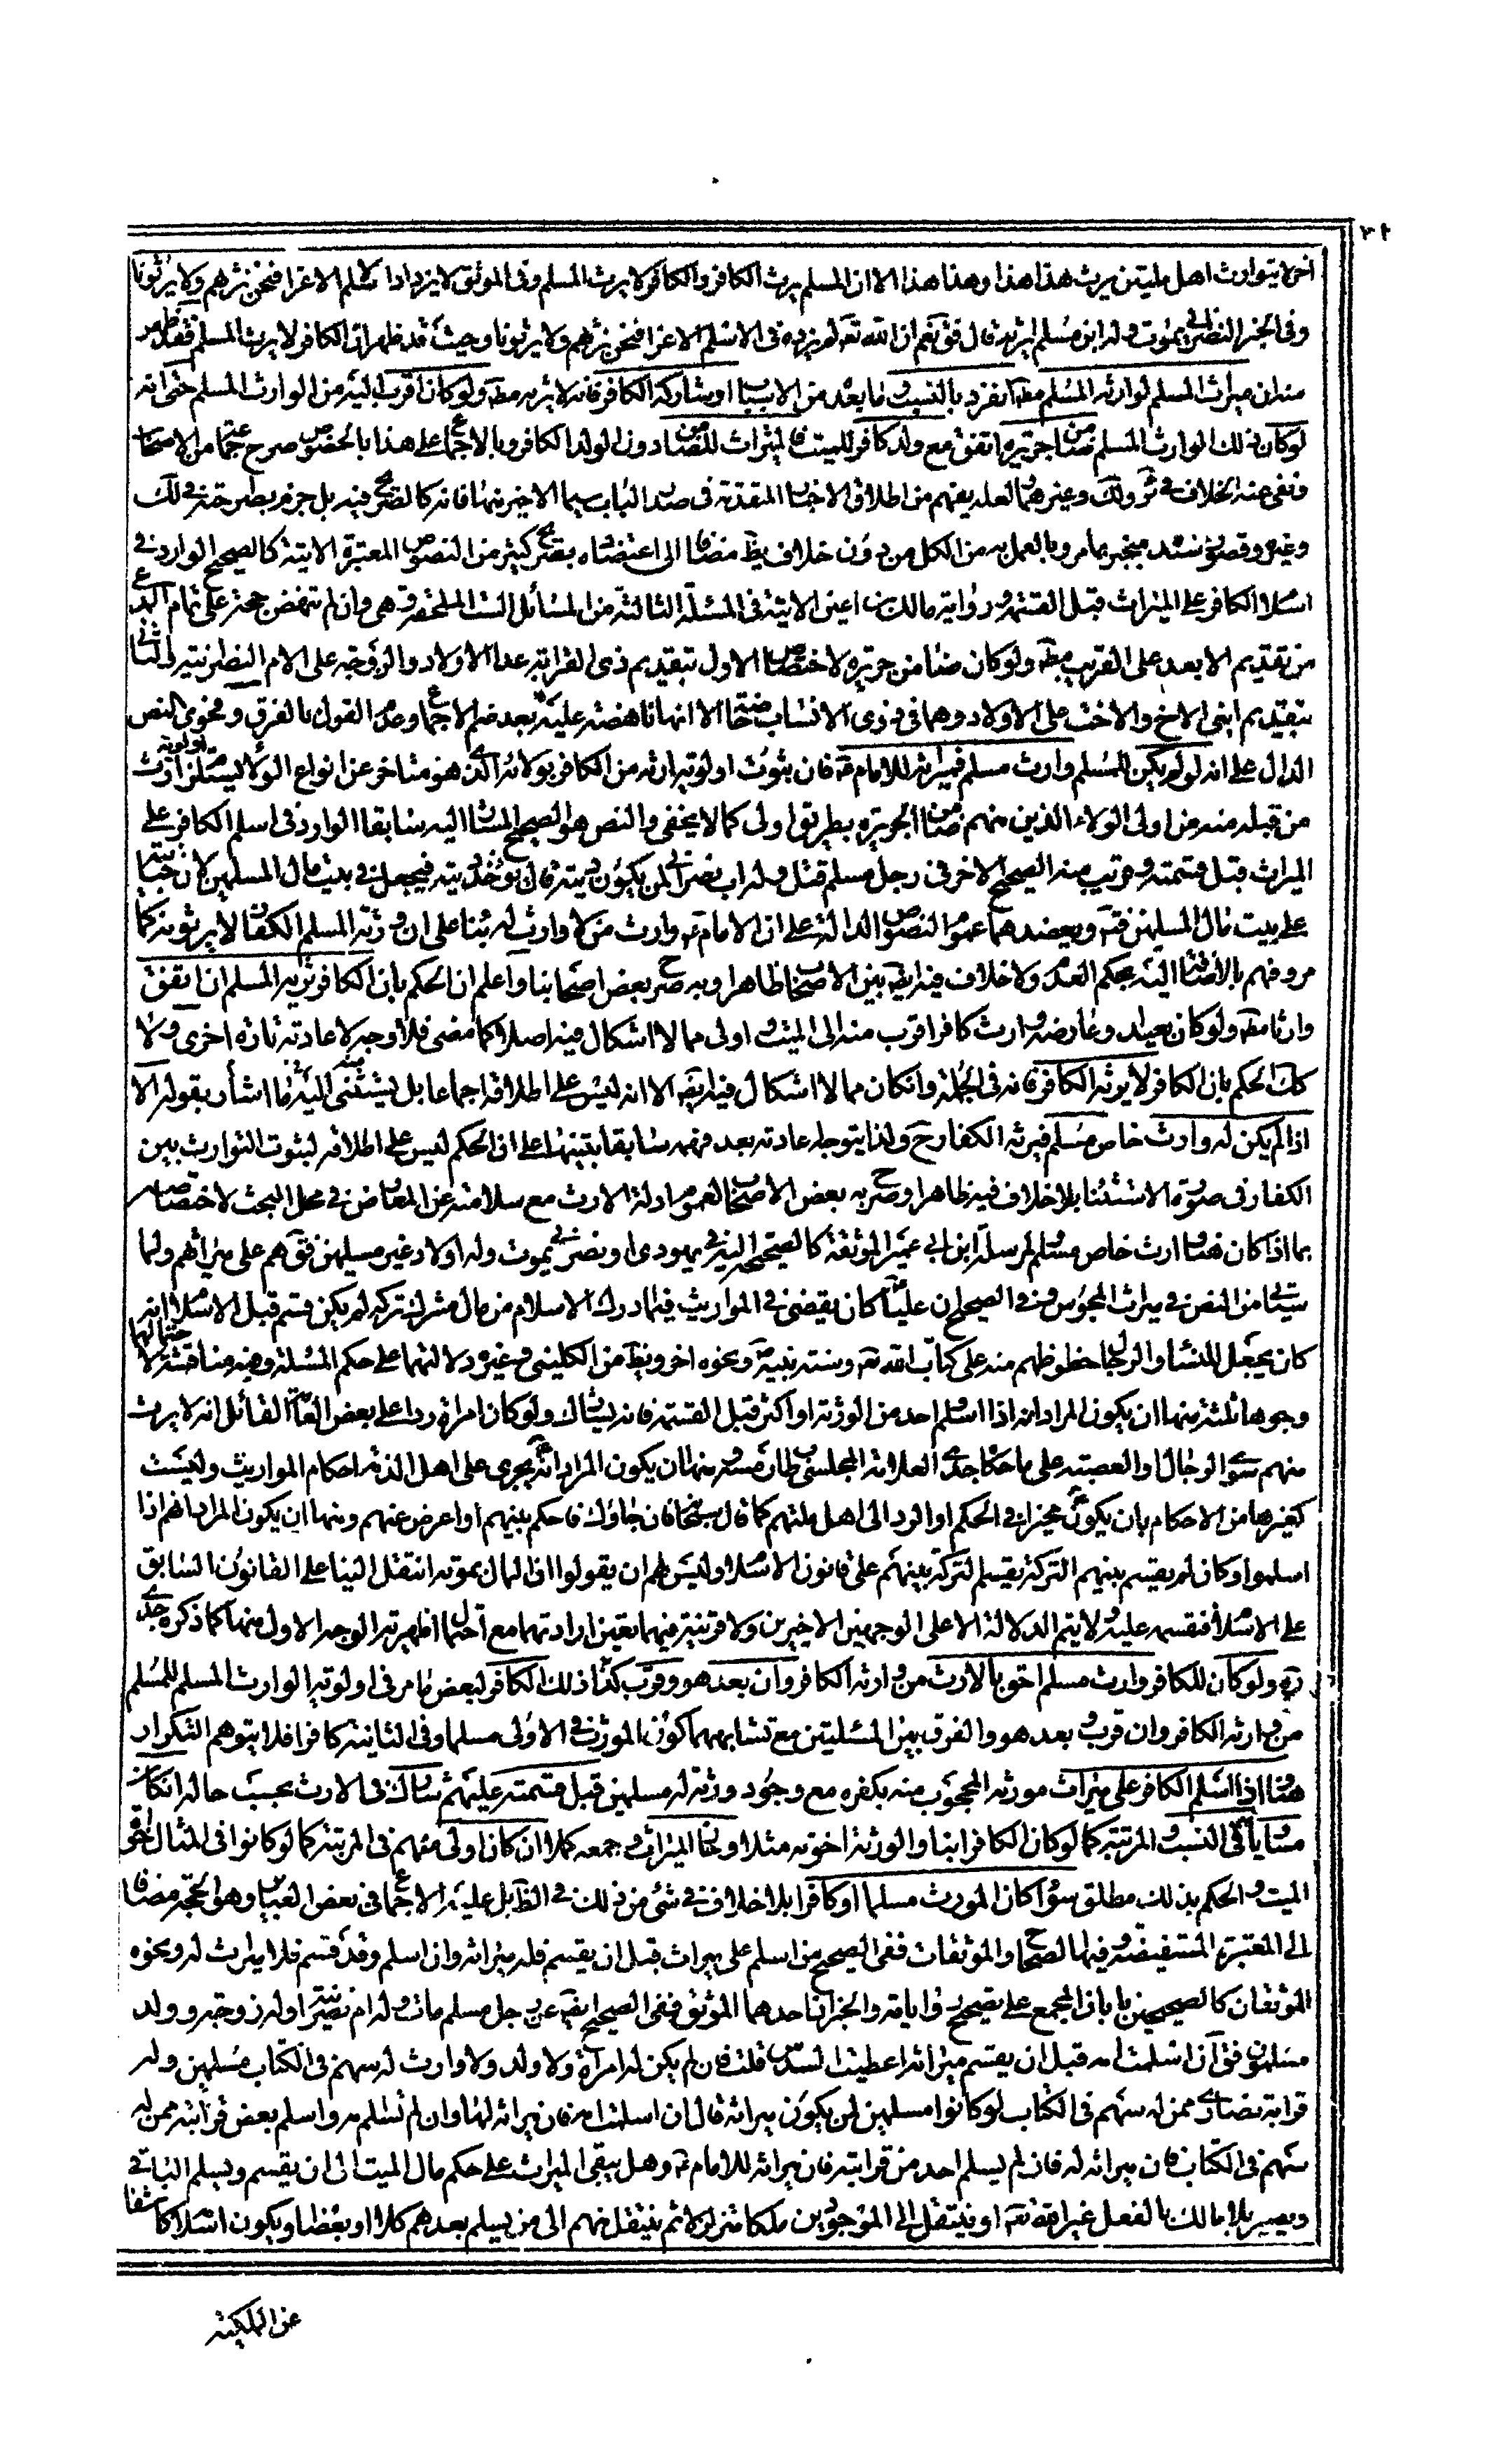 اخر لا يتوارث اهل ملتين يرث هذا هذا وهذا هذا الا ان المسلم يرث الكافر والكافر لا يرث المسلم وفى الموثق لا يزداد الاسلم الا عزا فنحن نرثهم ولا يرثونا
وفى الخبر النصرانى يموت وله ابن مسلم ايرثه قال فق نعم ان الله تعه لم يزده فى الاسلم الا عزا فنحن نرثهم ولا يرثونا وحيث قد ظهر ان الكافر لا يرث المسلم فقد ظهر
منه ان ميراث المسلم لوارثه المسلم مطه انفرد بالنسب ما بعد من الاسباب او شاركه الكافر فانه لا يرثه مطه ولو كان اقرب اليه من الوارث المسلم حتى انه
لو كان ذلك الوارث المسلم ضامن جريرة اتفق مع ولد كافر للميت فالميراث للضامن دون الولد الكافر وبالاجماع على هذا بالخصوص صرح جماعة من الاصحاب
ونفى عنه الخلاف فى ئر ولك وغيرهما ولعله يفهم من اطلاق الاخبار المتقدمة فى صدر الباب سيما الاخير منها فانه كالصريح فيه بل جزم بصراحته فى لك
وغيره وقصور سنده منجبر بما مر وبالعمل به من الكل من دون خلاف يظ مضافا الى اعتضاده بصريح كثير من النصوص المعتبرة الاتية كالصحيح الوارد فى
اسلام الكافر على الميراث قبل القسمة ورواية مالك بن اعين الاتية فى المسئلة الثالثة من المسائل الست الملحقة وهى وان لم تنهض حجة على تمام المدعى
من تقديم الابعد على القريب مطه ولو كان ضامن جريرة لاختصاص الاول بتقديم ذى القرابة عدا الاولاد والزوجة على الام النصرانية والثانى
بتقديم ابنى الاخ والاخت على الاولاد وهما فى ذوى الانساب خاصة الا انها ناهضة عليه بعد ضم الاجماع وعدم القول بالفرق وفحوى النص
الدال على انه لو لم يكن للمسلم وارث مسلم فميراثه للامام ع فان ثبوت اولويته ارثه من الكافر بولائه الذى هو متاخر عن انواع الولاء يستلزم اولوية ارث
من قبله منه من اولى الولاء الذين منهم ضامن الجريرة بطريق اولى كما لا يخفى والنص هو الصحيح المشار اليه سابقا الوارد فى اسلم الكافر على
الميراث قبل قسمته وقريب منه الصحيح الاخر فى رجل مسلم قتل وله اب نصرانى لمن يكون ديته قال تؤخذ ديته فيجعل فى بيت مال المسلمين لان جنايته
على بيت مال المسلمين فتم ويعضدهما عموم النصوص الدالة على ان الامام ع وارث من لا وارث له بناء على ان ورثة المسلم الكفار لا يرثونه كما
مر وفهم بالاضافة اليه بحكم العدم ولا خلاف فيه ايضه بين الاصحاب ظاهرا وبه صرح بعض اصحابنا واعلم ان الحكم بان الكافر يرثه المسلم ان اتفق
وارثا مطه ولو كان بعيدا وعارضه وارث كافر اقرب منه الى الميت اولى مما لا اشكال فيه اصلا كما مضى فلا وجه لاعادته تارة اخرى ولا
كك الحكم بان الكافر لا يرثه الكافر فانه فى الجملة وان كان مما لا اشكال فيه ايضه الا انه ليس على اطلاقه اجماعا بل يستثنى منه ما اشار اليه بقوله الا
اذا لم يكن له وارث خاص مسلم فيرثه الكفار ح ولذا يتوجه اعادته بعد فهمه سابقا بتنبيها على ان الحكم ليس على اطلاقه لثبوت التوارث بين
الكفار فى صورة الاستثناء بلا خلاف فيه ظاهرا وصرح به بعض الاصحاب لعموم ادلة الارث مع سلامته عن المعارض فى محل البحث لاختصاصه
بما اذا كان هناك وارث خاص مسلم لمرسلة ابن ابى عمير الموثقة كالصحيح اليه فى يهودى او نصرانى يموت وله اولاد غير مسلمين فق هم على ميراثهم ولما
سيأتى من النص فى ميراث المجوس وفى الصحيح ان عليا ع كان يقضى فى المواريث فيما ادرك الاسلام من مال مشرك تركه لم يكن قسم قبل الاسلام انه
كان يجعل للنساء والرجال حظوظهم منه على كتاب الله تعه وسنة نبيه ص ونحوه اخر ويظ من الكلينى وغيره دلالتهما على حكم المسئلة وفيه مناقشة لاحتمالهما
وجوها ثلثة منها ان يكون المراد انه اذا اسلم احد من الورثة او اكثر قبل القسمة فانه يشارك ولو كان امراة ردا على بعض العامة القائل انه لا يرث
منهم سوى الرجال والعصبة على ما حكاه جدى العلامة المجلسى طاب رمسه ومنها ان يكون المراد انه يجرى على اهل الذمة احكام المواريث وليست
كغيرها من الاحكام بان يكون مخيرا فى الحكم او الرد الى اهل ملتهم كما قال سبحانه فان جاؤك فاحكم بينهم او اعرض عنهم ومنها ان يكون المراد انهم اذا
اسلموا وكان لم يقسم بينهم التركة يقسم التركة بينهم على قانون الاسلام وليس لهم ان يقولوا ان المال بموته انتقل الينا على القانون السابق
على الاسلام فنقسمه عليه ولا يتم الدلالة الا على الوجهين الاخيرين ولا قرينة فيهما تعين ارادتهما مع احتمال اظهرية الوجه الاول منها كما ذكره جدى
ره ولو كان للكافر وارث مسلم احق بالارث من وارثه الكافر وان بعد هو وقرب كذا ذلك الكافر لبعض ما مر فى اولوية الوارث المسلم للمسلم
من وارثه الكافر وان قرب وبعد هو والفرق بين المسئلتين مع تشابههما كون الموّرث فى الاولى مسلما وفى الثانية كافرا فلا يتوهم التكرار
هنا اذا اسلم الكافر على ميراث مورثه المحجوب منه بكفره مع وجود ورثة له مسلمين قبل قسمته عليهم شارك فى الارث بحسب حاله ان كان
مساويا فى النسب والمرتبة كما لو كان الكافر ابنا والورثة اخوته مثلا وحاز الميراث جمعه كلا ان كان اولى منهم فى المرتبة كما لو كانوا فى المثال اخوة
الميت والحكم بذلك مطلق سواء كان المورث مسلما او كافرا بلا خلاف فى شئ من ذلك فى الظ بل عليه الاجماع فى بعض العبائر وهو الحجة مضافا
الى المعتبرة المستفيضة وفيها الصحاح والموثقات ففى الصحيح من اسلم على ميراث قبل ان يقسم فله ميراثه وان اسلم وقد قسم فلا ميراث له ونحوه
الموثقان كالصحيحين بابان المجمع على تصحيح رواياته والخبران احدهما الموثق وفى الصحيح ايضه عن رجل مسلم مات وله ام نصرانية وله زوجة وولد
مسلمون فق ان اسلمت امه قبل ان يقسم ميراثه اعطيت السدس قلت فان لم يكن له امراة ولا ولد ولا وارث له سهم فى الكتاب مسلمين وله
قرابة نصارى ممن له سهم فى الكتاب لو كانوا مسلمين لمن يكون ميراثه قال ان اسلمت امه فان ميراثه لها وان لم تسلم امه واسلم بعض قرابته ممن له
سهم فى الكتاب فان ميراثه له فان لم يسلم احد من قرابته فان ميراثه للامام ع وهل يبقى الميراث على حكم مال الميت الى ان يقسم ويسلم الباقى
ويصير بلا مالك بالفعل غير الله تعه او ينتقل الى الموجودين ملكا متزلزلا ثم ينتقل منهم الى من يسلم بعدهم كلا او بعضا ويكون اسلامه كاشفا
عن الملكية